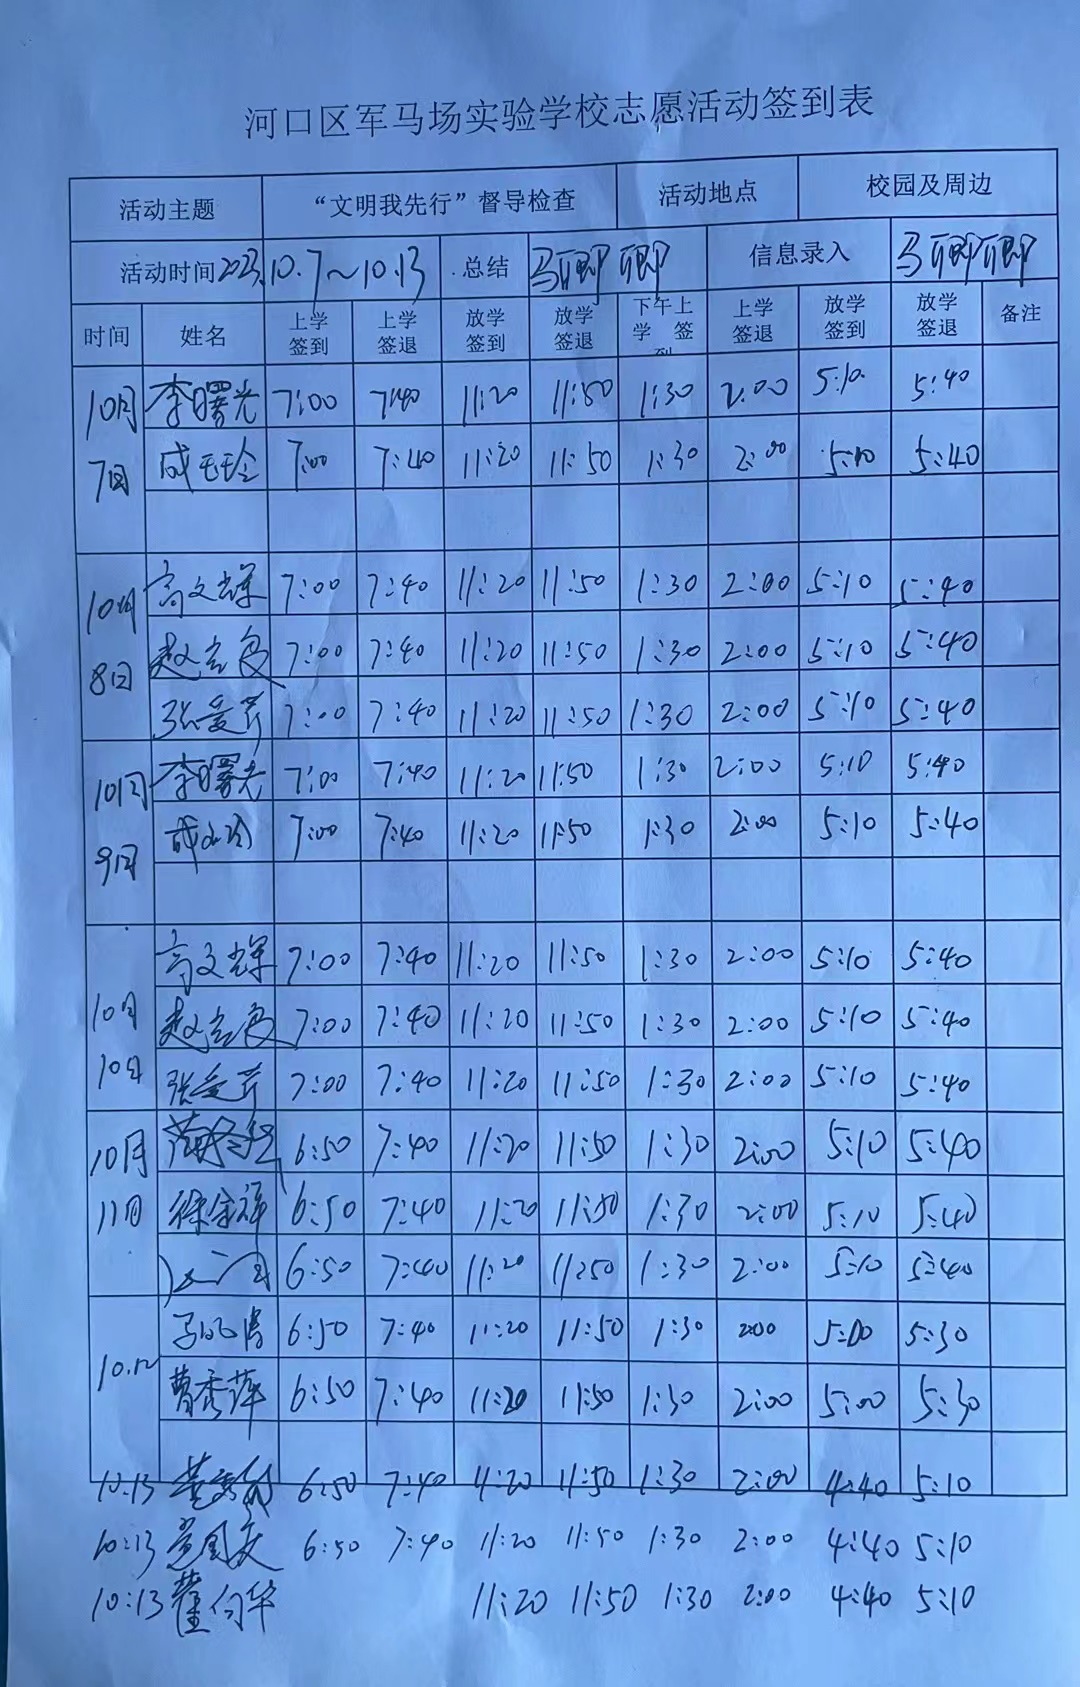 河口区军马场实验学校志愿活动签到表
活动主题 “文明我先行”督导检查 活动地点 校园及周边
活动时间 2023.10.7~10.13 总结 马卿卿 信息录入 马卿卿
时间 姓名 上学签到 上学签退 放学签到 放学签退 下午上学 签到 上学签退 放学签到 放学签退 备注
10月7日 李曙光 7:00 7:40 11:20 11:50 1:30 2:00 5:10 5:40
成玉玲 7:00 7:40 11:20 11:50 1:30 2:00 5:10 5:40
10月8日 高文辉 7:00 7:40 11:20 11:50 1:30 2:00 5:10 5:40
赵 7:00 7:40 11:20 11:50 1:30 2:00 5:10 5:40
张爱芹 7:00 7:40 11:20 11:50 1:30 2:00 5:10 5:40
10月9日 李曙光 7:00 7:40 11:20 11:50 1:30 2:00 5:10 5:40
成 7:00 7:40 11:20 11:50 1:30 2:00 5:10 5:40
10月10日 高文辉 7:00 7:40 11:20 11:50 1:30 2:00 5:10 5:40
赵 7:00 7:40 11:20 11:50 1:30 2:00 5:10 5:40
张爱芹 7:00 7:40 11:20 11:50 1:30 2:00 5:10 5:40
10月11日 6:50 7:40 11:20 11:50 1:30 2:00 5:10 5:40
徐金祥 6:50 7:40 11:20 11:50 1:30 2:00 5:10 5:40
6:50 7:40 11:20 11:50 1:30 2:00 5:10 5:40
10.12 马 6:50 7:40 11:20 11:50 1:30 2:00 5:00 5:30
曹秀萍 6:50 7:40 11:20 11:50 1:30 2:00 5:00 5:30
10.13 6:50 7:40 11:20 11:50 1:30 2:00 4:40 5:10
10:13 6:50 7:40 11:20 11:50 1:30 2:00 4:40 5:10
10:13 董向华 11:20 11:50 1:30 2:00 4:40 5:10